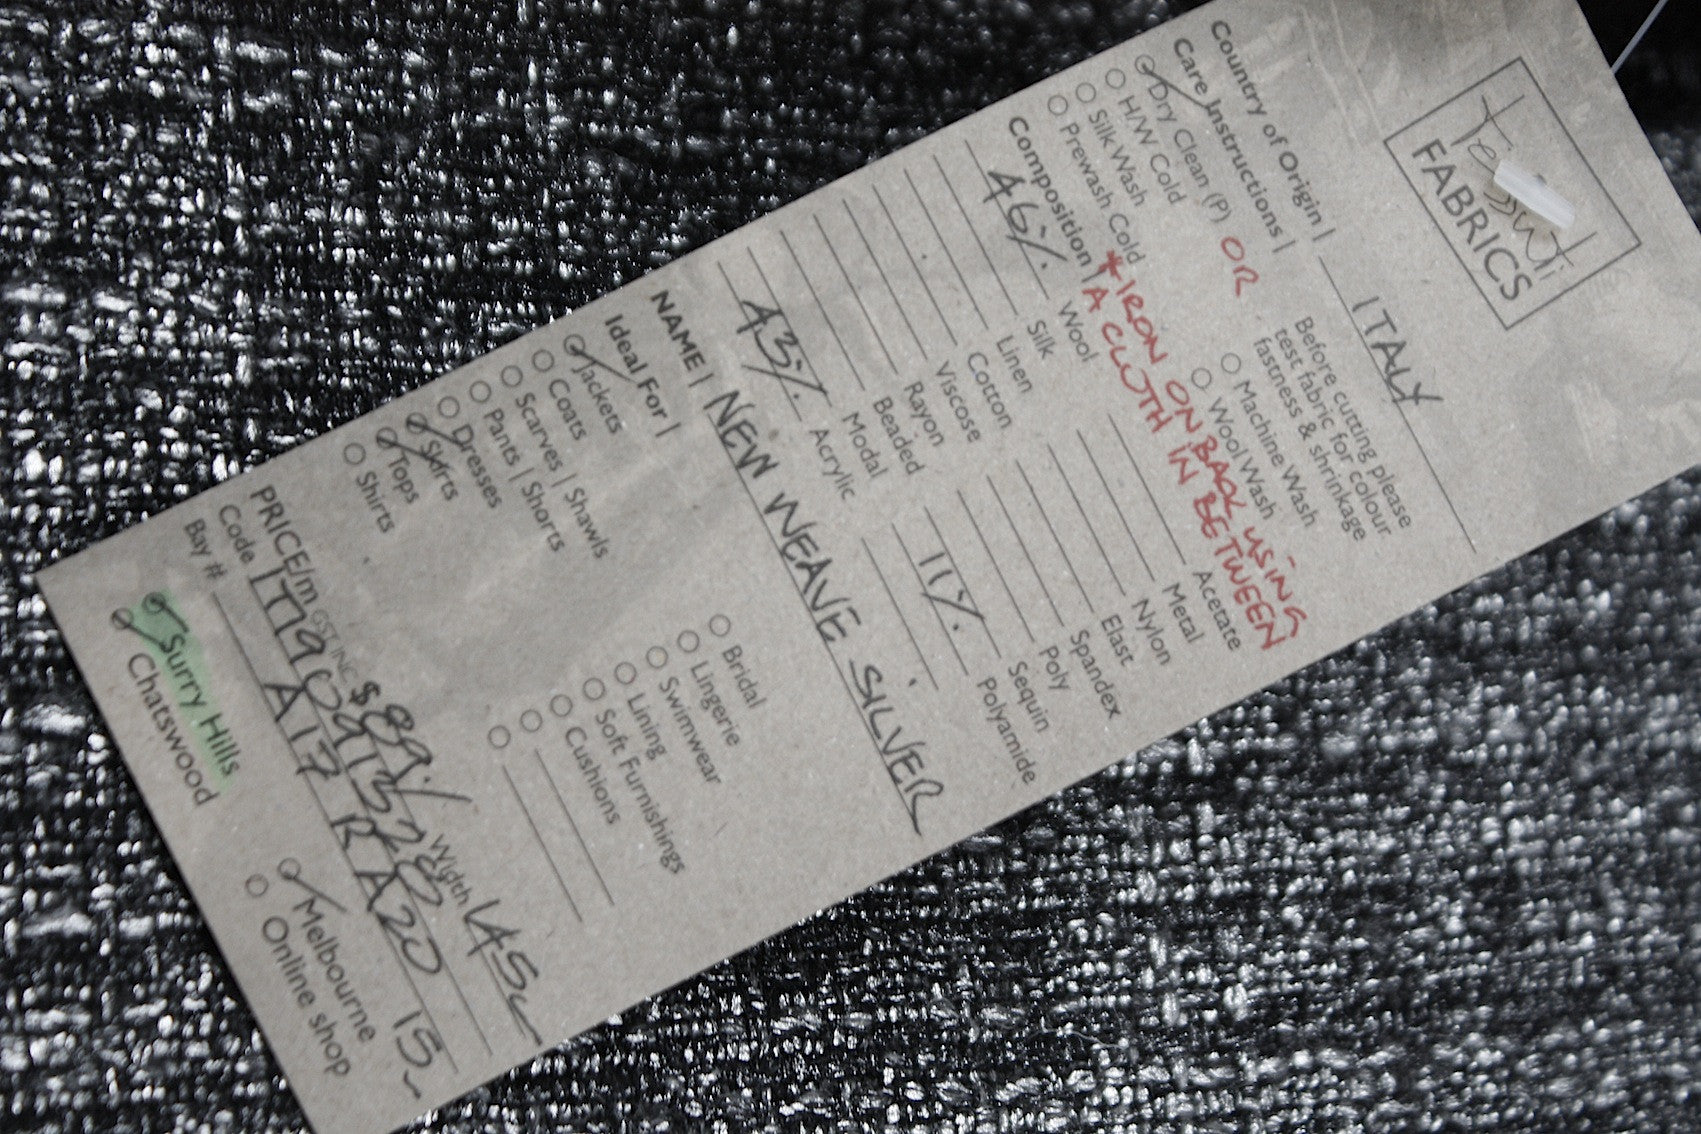 Tessuti
FABRICS
Country of Origin | ITALY
Care Instructions | Before cutting please
test fabric for colour
fastness & shrinkage
Dry Clean (P) OR
H/W Cold Machine Wash
Silk Wash Wool Wash
Prewash Cold
* IRON ON BACK USING
A CLOTH IN BETWEEN
Composition |
46% Wool Acetate
Silk Metal
Linen Nylon
Cotton Elast
Viscose Spandex
Rayon Poly
Beaded Sequin
Modal 11% Polyamide
43% Acrylic
NAME | NEW WEAVE SILVER
Ideal For |
Jackets Bridal
Coats Lingerie
Scarves | Shawls Swimwear
Pants | Shorts Lining
Dresses Soft Furnishings
Skirts Cushions
Tops
Shirts
PRICE/m GST INC $89./ Width 145
Code
Bay # A17 RA20 15
Surry Hills Melbourne
Chatswood Online shop